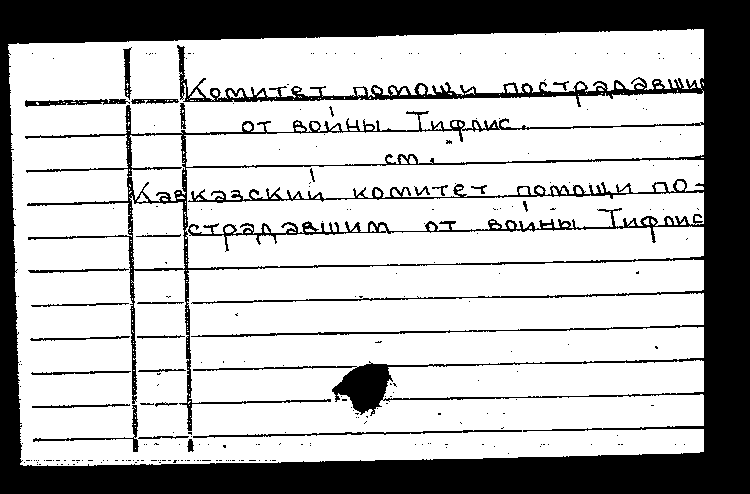 Комитет помощи пострадавши
от войны. Тифлис.
см.
Кавказский комитет помощи по-
страдавшим от войны. Тифлис